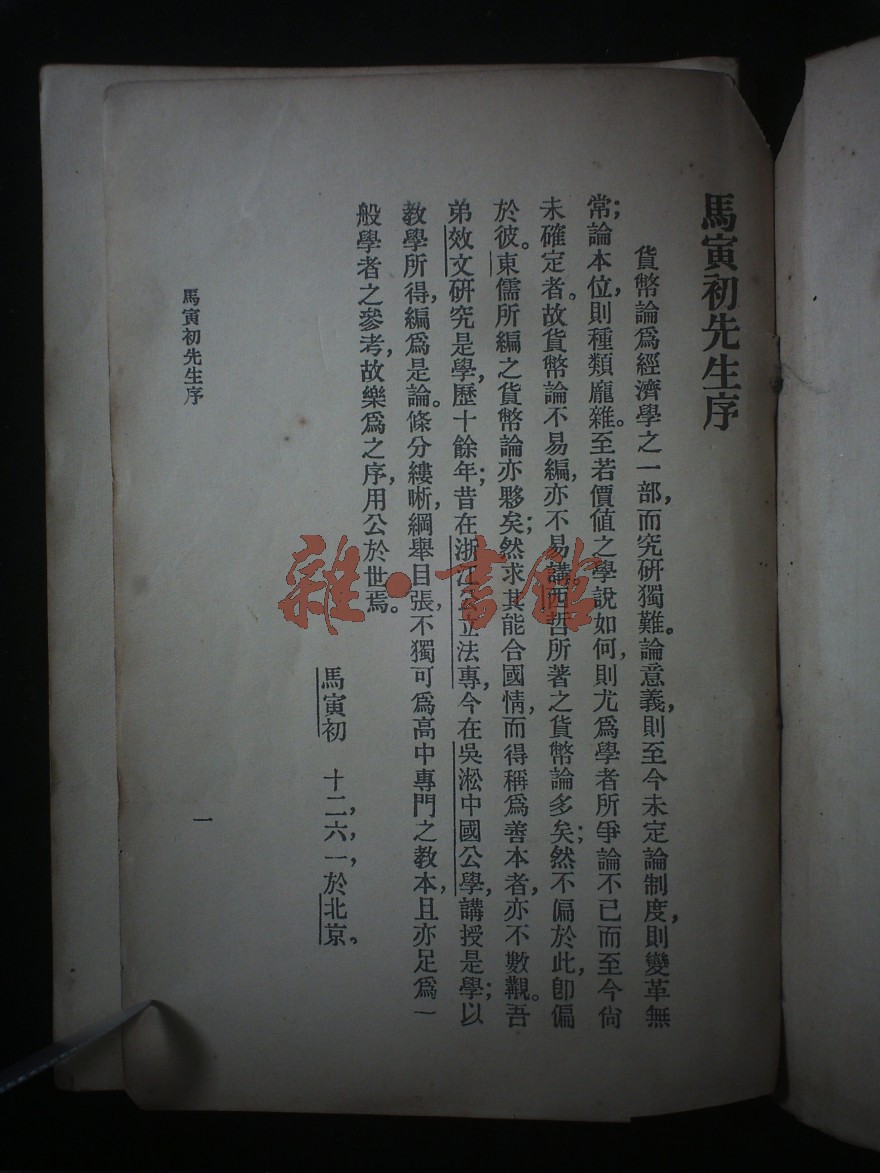 馬寅初先生序
貨幣論爲經濟學之一部，而究研獨難。論意義，則至今未定論制度，則變革無
常；論本位，則種類龐雜。至若價值之學說如何，則尤爲學者所爭論不已而至今尙
未確定者。故貨幣論不易編，亦不易講。西哲所著之貨幣論多矣；然不偏於此，卽偏
於彼。東儒所編之貨幣論亦夥矣；然求其能合國情，而得稱爲善本者，亦不數覯。吾
弟效文研究是學，歷十餘年；昔在浙江公立法專，今在吳淞中國公學，講授是學；以
教學所得，編爲是論。條分縷晰，綱舉目張，不獨可爲高中專門之教本，且亦足爲一
般學者之參考，故樂爲之序，用公於世焉。
馬寅初　十二，六，一，於北京。
馬寅初先生序
一
雜·書館